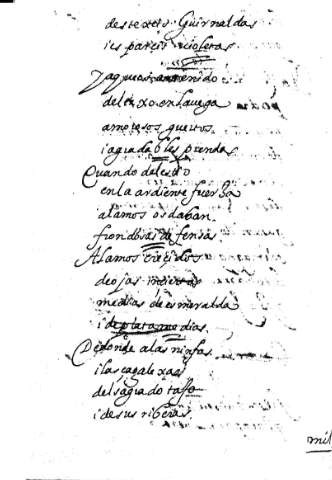 destexeis Guirnaldas
i es parcis violetas
Ya que os a venido
del texo en la vega
amorosos gustos
i agradables prendas
Cuando del estio
en la ardiente fuerça
alamos os daban
frondosas defensas
Alamos crecidos
de ojas inciertas
medias de esmeralda
i de plata medias
De donde a las ninfas
i las çagalexas
del sagrado taJo
i de sus riberas
mil